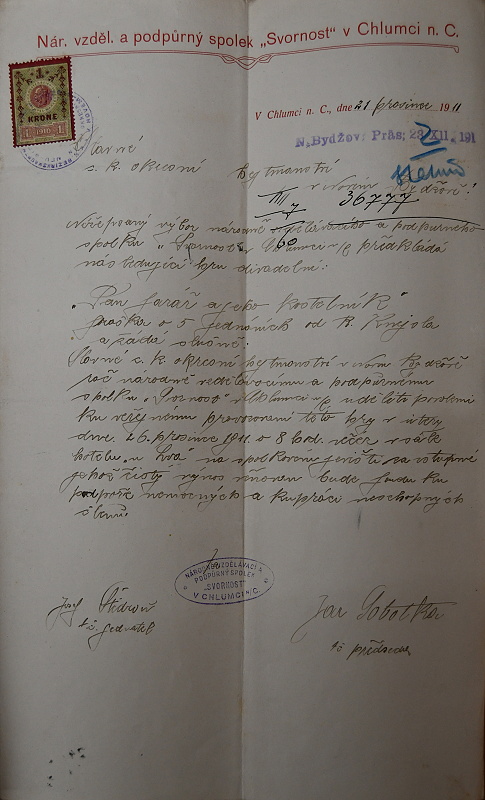 Nár. vzděl. a podpůrný spolek „Svornost" v Chlumci n. C.
1
KRONE
1 1910 1
V Chlumci n. C., dne 21 prosince 1911
N. Bydžov, Präs; 23. XII. 191
2
Slavné
c. k. okresní hejtmanství
v Novém Bydžově!
36777
Níže psaný výbor národně vzdělávacího a podpůrného
spolku „Svornost" v Chlumci n/C předkládá
následující hru divadelní:
„Pan farář a jeho kostelník"
fraška o 5 jednáních od
a žádá slušně:
Slavné c. k. okresní hejtmanství v Novém Bydžově
račiž národně vzdělávacímu a podpůrnému
spolku „Svornost" v Chlumci n/C uděliti povolení
ku veřejnému provozování této hry v úterý
dne 26. prosince 1911. o 8 hod. večer v sále
hotelu u na jevišti za vstupné
jehož čistý výnos věnován bude fondu ku
podpoře nemocných a ku práci neschopných
členů.
NÁRODNĚ VZDĚLÁVACÍ A
PODPŮRNÝ SPOLEK
„SVORNOST"
V CHLUMCI n. C.
Josef
t. č. jednatel
Jan Sobotka
t. č. předseda